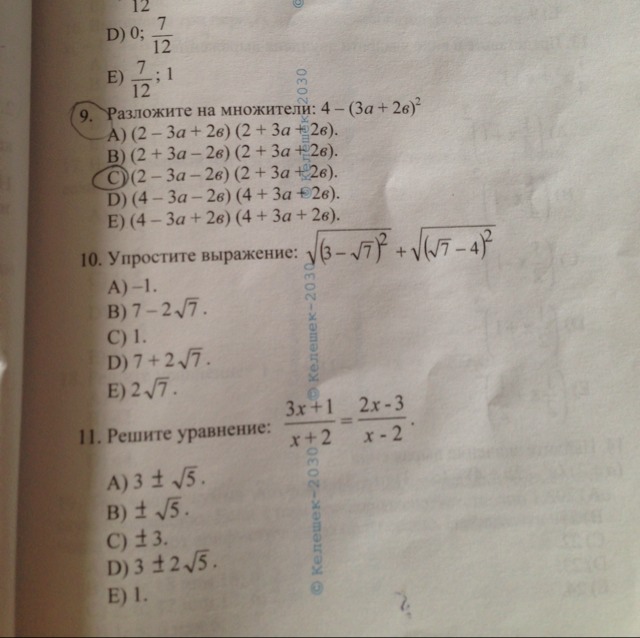 12
D) 0; 7/12
E) 7/12; 1
9. Разложите на множители: 4 – (3a + 2в)²
A) (2 – 3a + 2в) (2 + 3a + 2в).
B) (2 + 3a – 2в) (2 + 3a + 2в).
C) (2 – 3a – 2в) (2 + 3a + 2в).
D) (4 – 3a – 2в) (4 + 3a + 2в).
E) (4 – 3a + 2в) (4 + 3a + 2в).
10. Упростите выражение: √(3 – √7)² + √(√7 – 4)²
A) –1.
B) 7 – 2√7.
C) 1.
D) 7 + 2√7.
E) 2√7.
11. Решите уравнение: (3x + 1)/(x + 2) = (2x - 3)/(x - 2).
A) 3 ± √5.
B) ± √5.
C) ± 3.
D) 3 ± 2√5.
E) 1.
© Келешек-2030
© Келешек-2030
© Келешек-2030